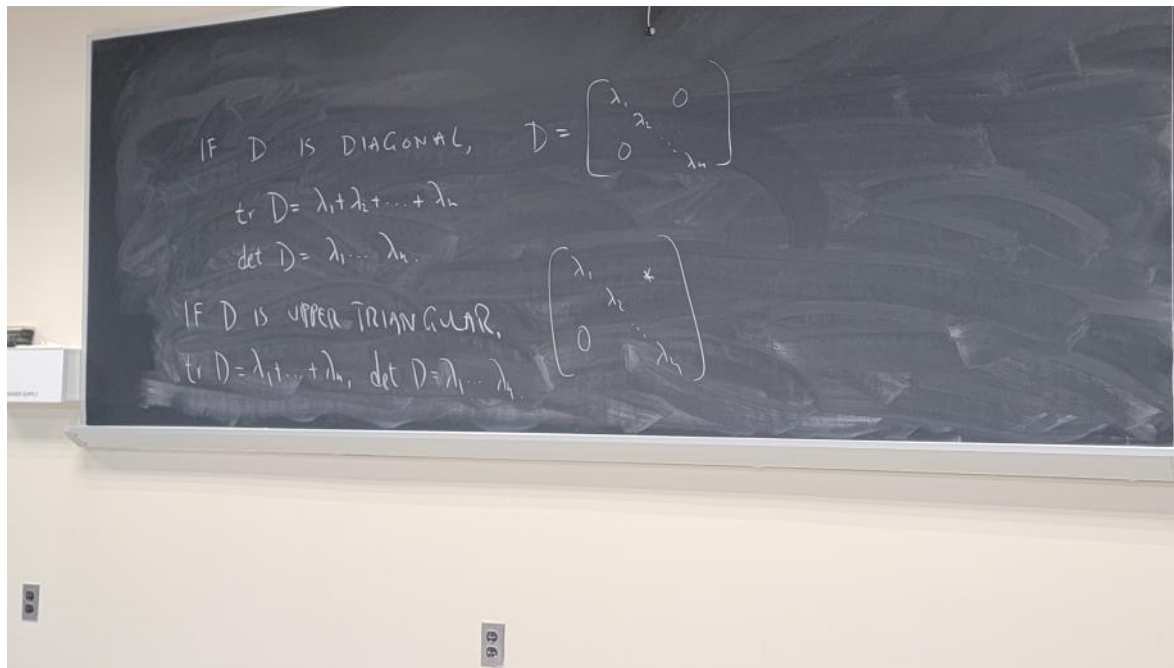 IF D IS DIAGONAL, D = [λ₁ 0
λ₂
0 ⋱ λₙ]
tr D = λ₁ + λ₂ + ... + λₙ
det D = λ₁ ... λₙ.
IF D IS UPPER TRIANGULAR, [λ₁ *
λ₂
0 ⋱
λₙ]
tr D = λ₁ + ... + λₙ, det D = λ₁ ... λₙ.